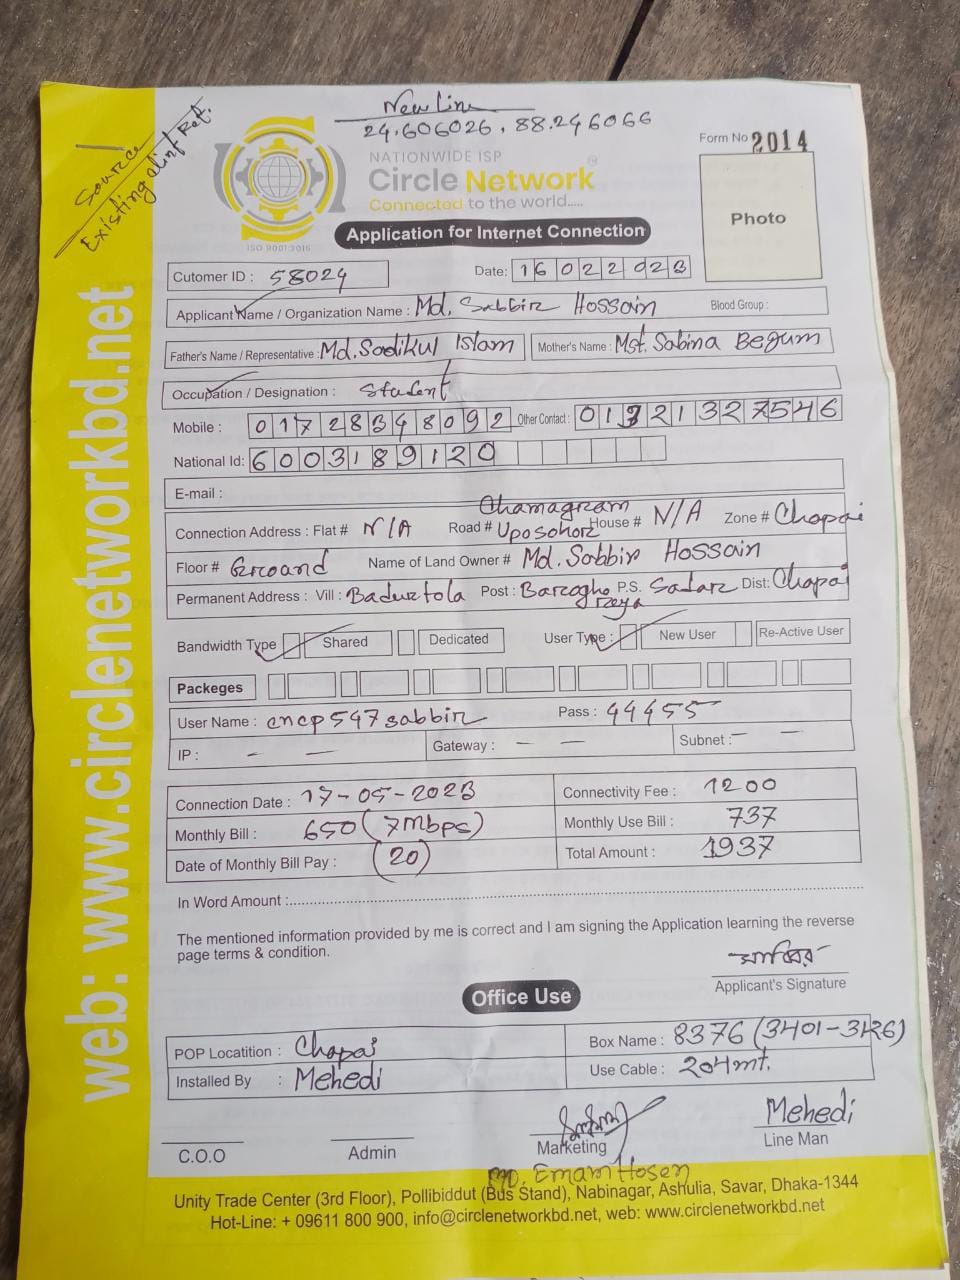 New Line
24.606026, 88.246066
Source
Existing Ref.
Form No 2014
NATIONWIDE ISP
Circle Network
Connected to the world.....
ISO 9001:2015
Photo
Application for Internet Connection
Cutomer ID : 58024
Date: 16022023
Applicant Name / Organization Name : Md. Sabbir Hossain Blood Group :
Father's Name / Representative : Md. Sadikul Islam Mother's Name : Mst. Sabina Begum
Occupation / Designation : Student
Mobile : 01728348092 Other Contact : 01321327546
National Id: 6003189120
E-mail :
Connection Address : Flat # N/A Road # Chamagram Uposohor House # N/A Zone # Chapai
Floor # Ground Name of Land Owner # Md. Sabbir Hossain
Permanent Address : Vill : Badurtola Post : Baroghoreya P.S. Sadar Dist: Chapai
Bandwidth Type Shared Dedicated User Type : New User Re-Active User
Packeges
User Name : cncp547sabbir Pass : 44455
IP : - - Gateway : - - Subnet : - -
Connection Date : 17-05-2023 Connectivity Fee : 1200
Monthly Bill : 650 (7Mbps) Monthly Use Bill : 737
Date of Monthly Bill Pay : (20) Total Amount : 1937
In Word Amount :
The mentioned information provided by me is correct and I am signing the Application learning the reverse
page terms & condition.
Applicant's Signature
Office Use
POP Locatition : Chapai Box Name : 8376 (3401-3426)
Installed By : Mehedi Use Cable : 204mt.
Mehedi
C.O.O Admin Marketing Line Man
MD. Emam Hosen
Unity Trade Center (3rd Floor), Pollibiddut (Bus Stand), Nabinagar, Ashulia, Savar, Dhaka-1344
Hot-Line: + 09611 800 900, info@circlenetworkbd.net, web: www.circlenetworkbd.net
web: www.circlenetworkbd.net